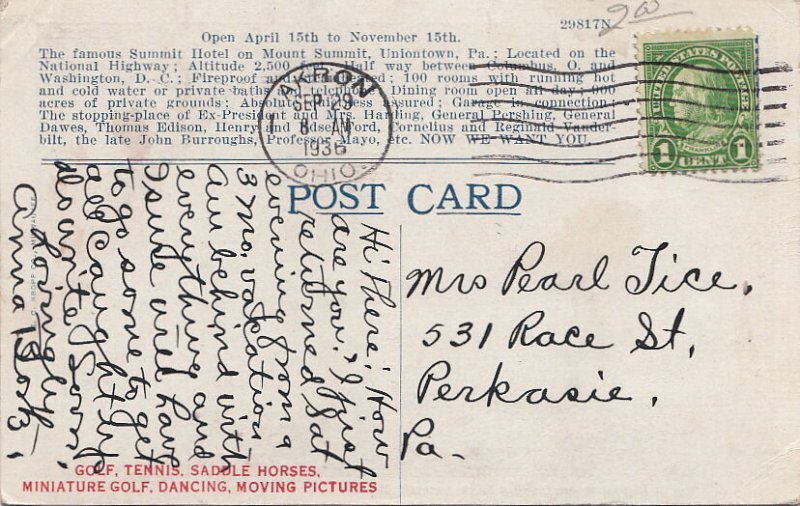 29817N
200
Open April 15th to November 15th.
The famous Summit Hotel on Mount Summit, Uniontown, Pa.; Located on the
National Highway; Altitude 2,500 Half way between Columbus, O. and
Washington, D. C.; Fireproof and 100 rooms with running hot
and cold water or private baths Dining room open all day; 900
acres of private grounds; Absolute assured; Garage in connection;
The stopping-place of Ex-President and Mrs. Harding, General Pershing, General
Dawes, Thomas Edison, Henry and Edsel Ford, Cornelius and Reginald Vander-
bilt, the late John Burroughs, Professor Mayo, etc. NOW WE WANT YOU.
AKRON
SEP 29
8 AM
1936
OHIO
UNITED STATES POSTAGE
1 CENT 1
POST CARD
Hi There! How
are you? I just
returned Sat
evening from a
3 mo. vacation
am behind with
everything and
I sure will have
to go some to get
all caught up
do write soon,
Lovingly
Anna Bork.
Mrs Pearl Tice,
531 Race St,
Perkasie,
Pa.
GOLF, TENNIS, SADDLE HORSES,
MINIATURE GOLF, DANCING, MOVING PICTURES